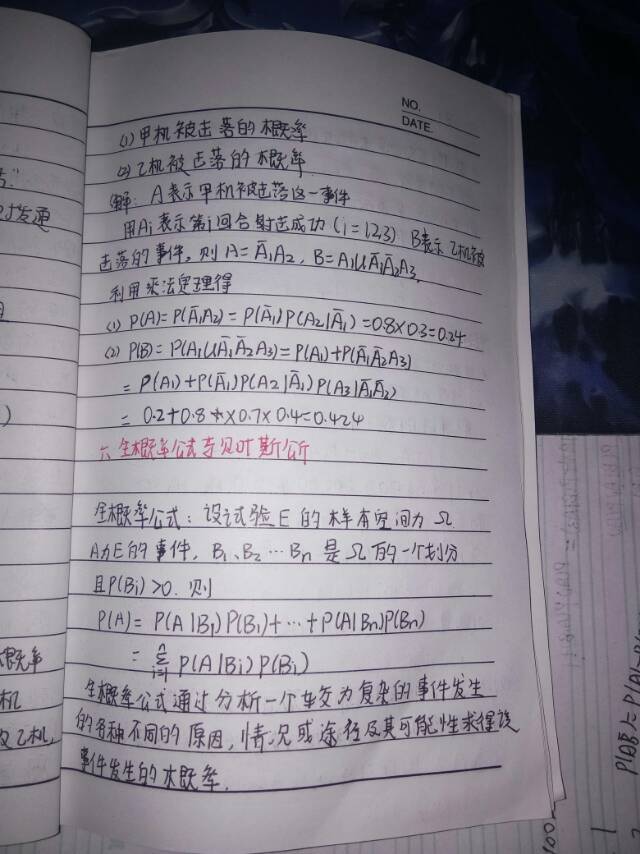 NO.
DATE.
(1) 甲机被击落的概率
(2) 乙机被击落的概率
解: A表示甲机被击落这一事件
用Ai表示第i回合射击成功 (i=1,2,3) B表示乙机被
击落的事件, 则 A=Ā₁A₂, B=A₁∪Ā₁Ā₂A₃.
利用乘法定理得
(1) P(A)=P(Ā₁A₂)=P(Ā₁)P(A₂|Ā₁)=0.8×0.3=0.24
(2) P(B)=P(A₁∪Ā₁Ā₂A₃)=P(A₁)+P(Ā₁Ā₂A₃)
=P(A₁)+P(Ā₁)P(A₂|Ā₁)P(A₃|Ā₁Ā₂)
=0.2+0.8××0.7×0.4=0.424
六 全概率公式与贝叶斯公所
全概率公式: 设试验E的样本空间为Ω
A为E的事件, B₁、B₂…Bn是Ω的一个划分
且P(Bi)>0. 则
P(A)=P(A|B₁)P(B₁)+…+P(A|Bn)P(Bn)
=Σⁿᵢ₌₁ P(A|Bi)P(Bi)
全概率公式通过分析一个较为复杂的事件发生
的各种不同的原因, 情况或途径及其可能性求得该
事件发生的概率.